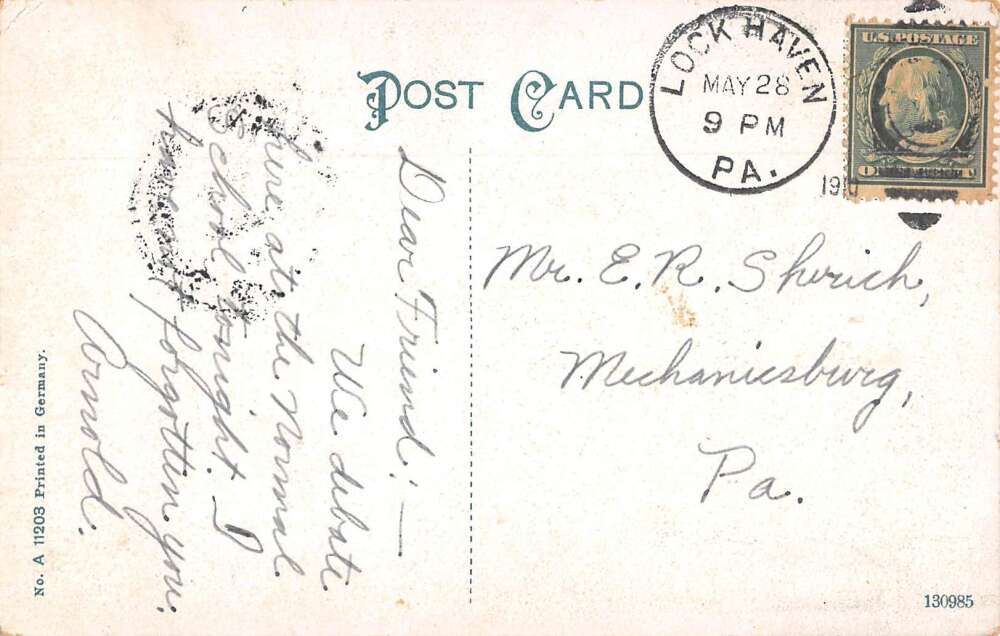 POST CARD
LOCK HAVEN
MAY 28
9 PM
PA.
1910
U.S. POSTAGE
Dear Friend:—
We debate
here at the Normal
School tonight. I
have not forgotten you.
Arnold.
Mr. E. R. Sherich,
Mechanicsburg,
Pa.
No. A 11203 Printed in Germany.
130985